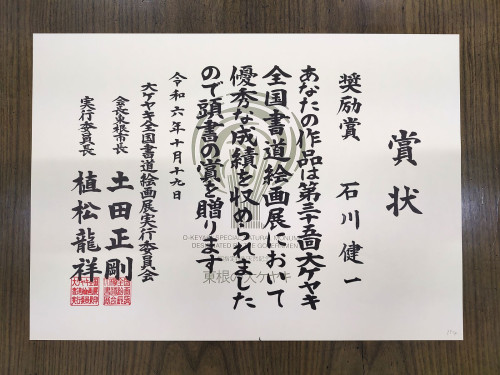 賞状
奨励賞　石川健一
あなたの作品は第三十五回大ケヤキ
全国書道絵画展において
優秀な成績を収められました
ので頭書の賞を贈ります
令和六年十月十九日
大ケヤキ全国書道絵画展実行委員会
会長東根市長　土田正剛
実行委員長　植松龍祥
東根の大ケヤキ